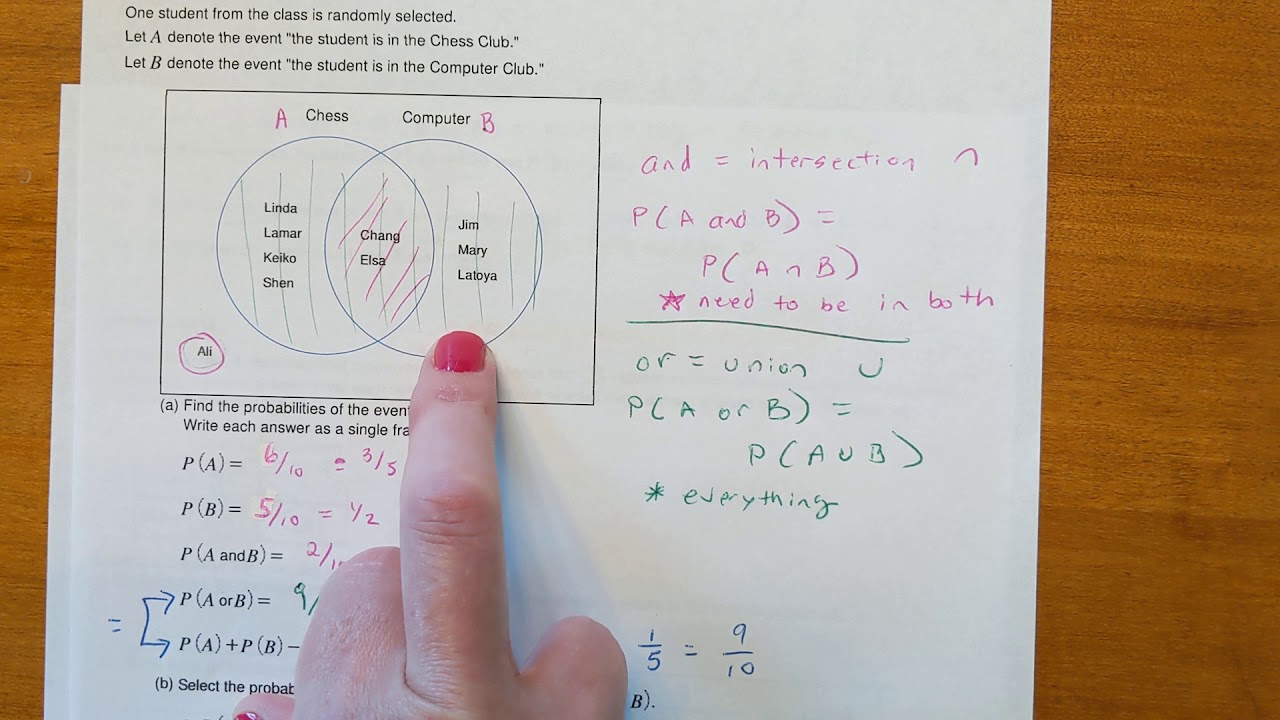 One student from the class is randomly selected.
Let A denote the event "the student is in the Chess Club."
Let B denote the event "the student is in the Computer Club."
A Chess Computer B
Linda
Lamar
Keiko
Shen
Chang
Elsa
Jim
Mary
Latoya
Ali
and = intersection ∩
P(A and B) =
P(A ∩ B)
* need to be in both
or = union ∪
P(A or B) =
P(A ∪ B)
* everything
(a) Find the probabilities of the
Write each answer as a single
P(A) = 6/10 = 3/5
P(B) = 5/10 = 1/2
P(A and B) = 2/
P(A or B) = 9/
= P(A) + P(B) −
1/5 = 9/10
(b) Select the
B).